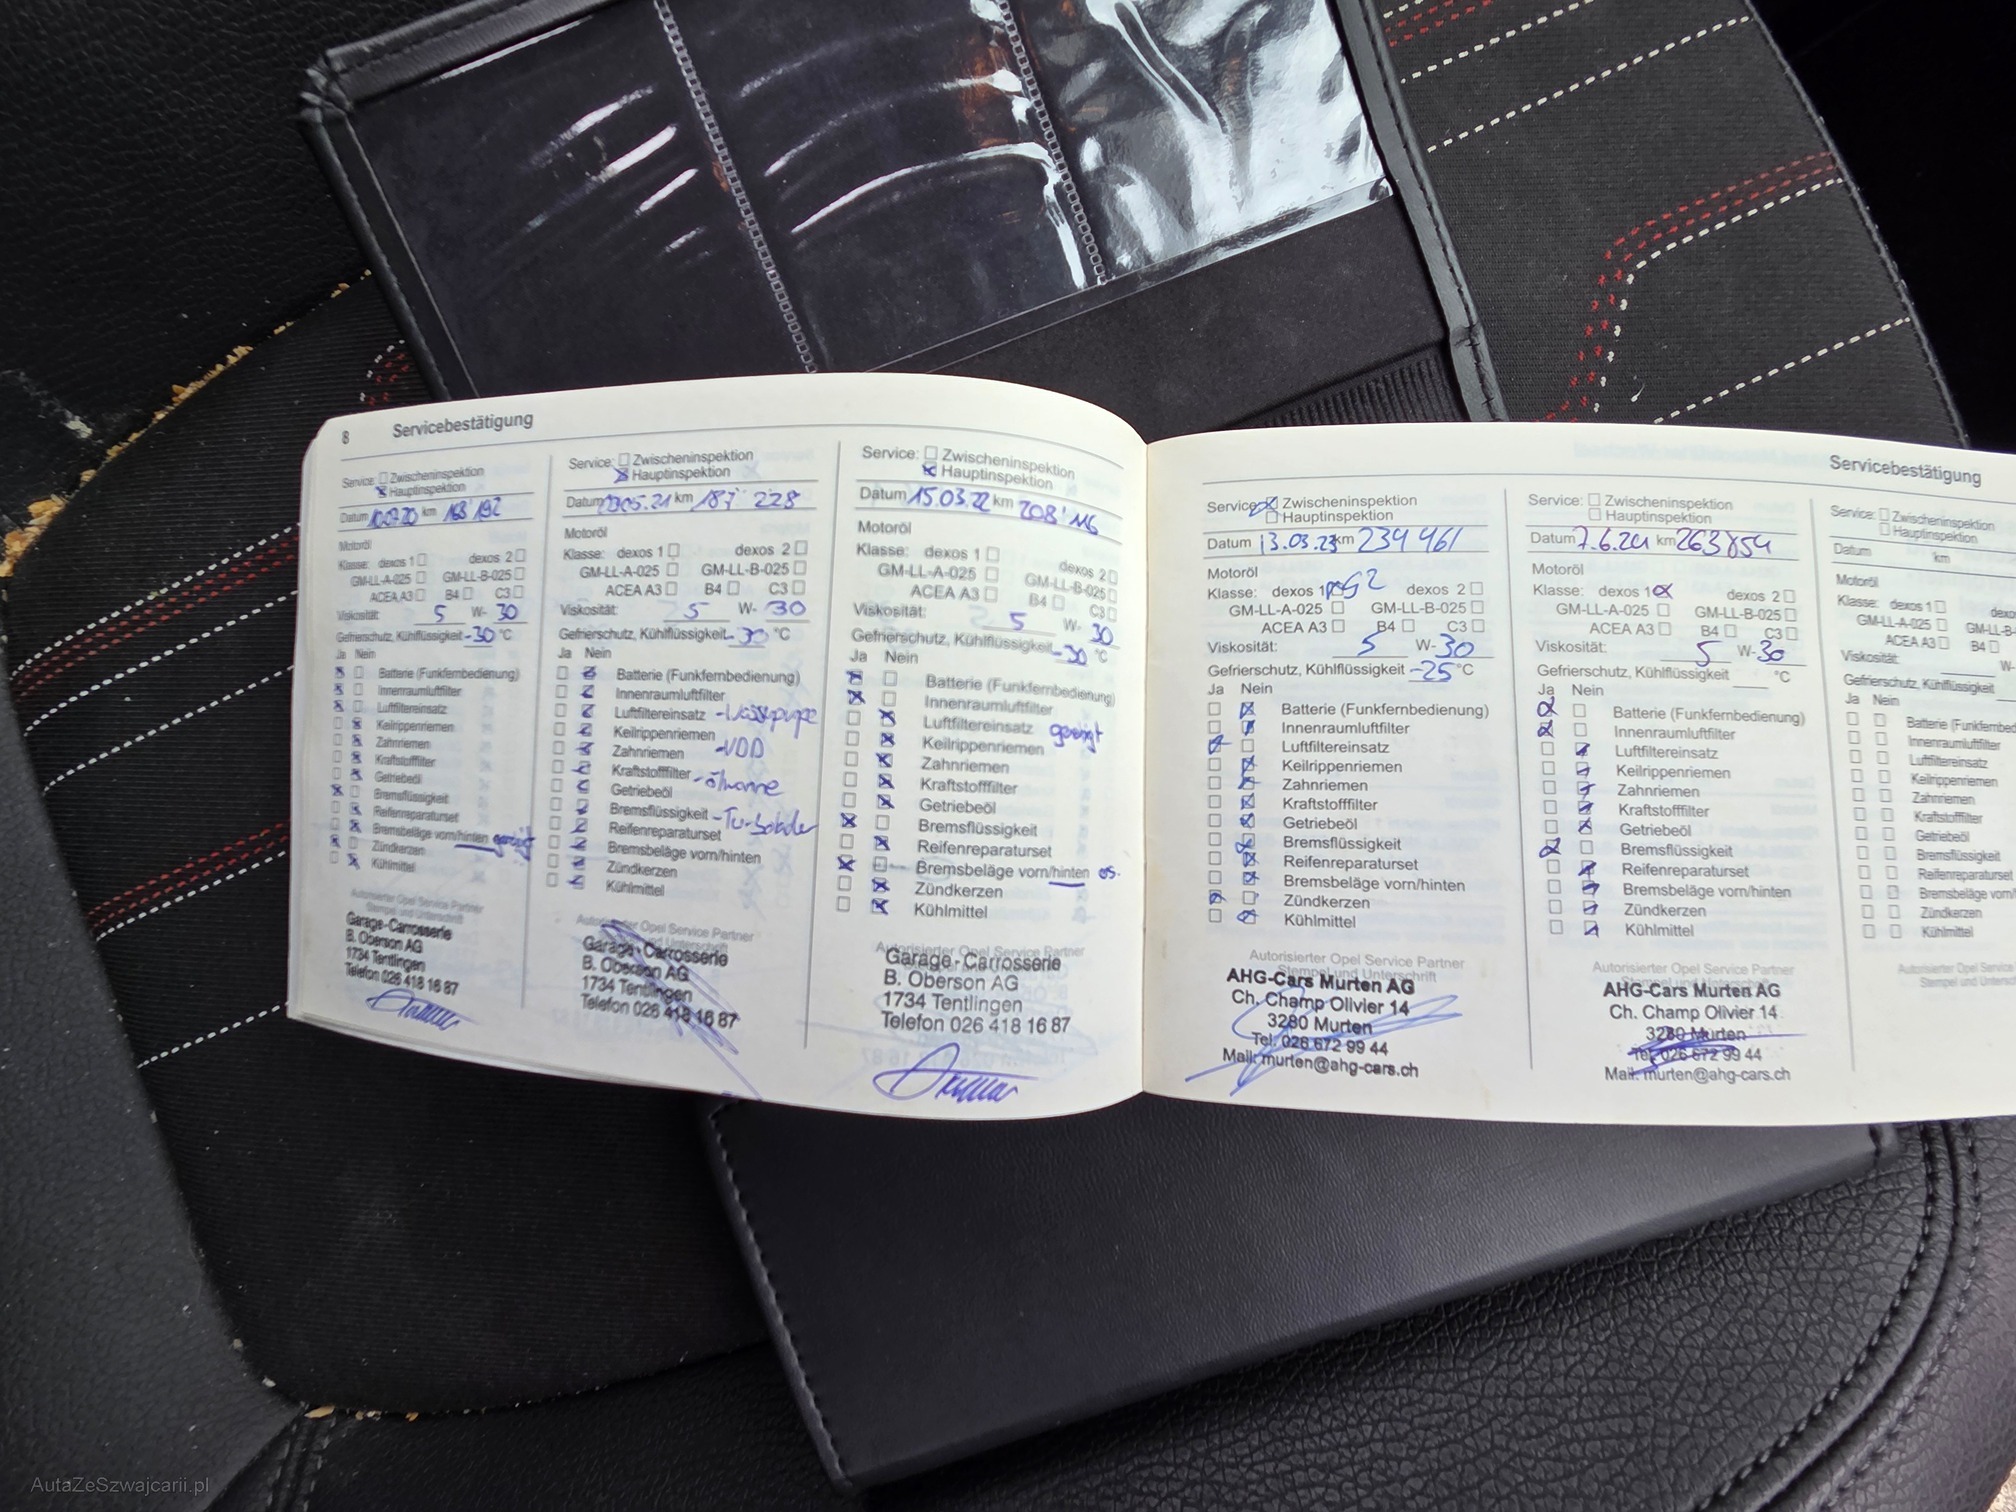 8 Servicebestätigung
Service: Zwischeninspektion
Hauptinspektion
Datum km 168'192
Motoröl
Klasse: dexos 1 dexos 2
GM-LL-A-025 GM-LL-B-025
ACEA A3 B4 C3
Viskosität: 5 W- 30
Gefrierschutz, Kühlflüssigkeit -30 °C
Ja Nein
Batterie (Funkfernbedienung)
Innenraumluftfilter
Luftfiltereinsatz
Keilrippenriemen
Zahnriemen
Kraftstofffilter
Getriebeöl
Bremsflüssigkeit
Reifenreparaturset
Bremsbeläge vorn/hinten
Zündkerzen
Kühlmittel
Autorisierter Opel Service Partner
Stempel und Unterschrift
Garage-Carrosserie
B. Oberson AG
1734 Tentlingen
Telefon 026 418 16 87
Service: Zwischeninspektion
Hauptinspektion
Datum .05.21 km 187 228
Motoröl
Klasse: dexos 1 dexos 2
GM-LL-A-025 GM-LL-B-025
ACEA A3 B4 C3
Viskosität: 5 W- 30
Gefrierschutz, Kühlflüssigkeit -30 °C
Ja Nein
Batterie (Funkfernbedienung)
Innenraumluftfilter
Luftfiltereinsatz
Keilrippenriemen
Zahnriemen -VDD
Kraftstofffilter -Ölwanne
Getriebeöl
Bremsflüssigkeit -Turbolader
Reifenreparaturset
Bremsbeläge vorn/hinten
Zündkerzen
Kühlmittel
Autorisierter Opel Service Partner
Garage-Carrosserie
B. Oberson AG
1734 Tentlingen
Telefon 026 418 16 87
Service: Zwischeninspektion
Hauptinspektion
Datum 15.03.22 km 208'116
Motoröl
Klasse: dexos 1 dexos 2
GM-LL-A-025 GM-LL-B-025
ACEA A3 B4 C3
Viskosität: 5 W- 30
Gefrierschutz, Kühlflüssigkeit -30 °C
Ja Nein
Batterie (Funkfernbedienung)
Innenraumluftfilter
Luftfiltereinsatz
Keilrippenriemen
Zahnriemen
Kraftstofffilter
Getriebeöl
Bremsflüssigkeit
Reifenreparaturset
Bremsbeläge vorn/hinten
Zündkerzen
Kühlmittel
Autorisierter Opel Service Partner
Garage-Carrosserie
B. Oberson AG
1734 Tentlingen
Telefon 026 418 16 87
Servicebestätigung
Service: Zwischeninspektion
Hauptinspektion
Datum 13.03.23 km 234 461
Motoröl
Klasse: dexos 1 G2 dexos 2
GM-LL-A-025 GM-LL-B-025
ACEA A3 B4 C3
Viskosität: 5 W-30
Gefrierschutz, Kühlflüssigkeit -25 °C
Ja Nein
Batterie (Funkfernbedienung)
Innenraumluftfilter
Luftfiltereinsatz
Keilrippenriemen
Zahnriemen
Kraftstofffilter
Getriebeöl
Bremsflüssigkeit
Reifenreparaturset
Bremsbeläge vorn/hinten
Zündkerzen
Kühlmittel
Autorisierter Opel Service Partner
Stempel und Unterschrift
AHG-Cars Murten AG
Ch. Champ Olivier 14
3280 Murten
Tel. 026 672 99 44
Mail: murten@ahg-cars.ch
Service: Zwischeninspektion
Hauptinspektion
Datum 7.6.24 km 263854
Motoröl
Klasse: dexos 1 dexos 2
GM-LL-A-025 GM-LL-B-025
ACEA A3 B4 C3
Viskosität: 5 W-30
Gefrierschutz, Kühlflüssigkeit °C
Ja Nein
Batterie (Funkfernbedienung)
Innenraumluftfilter
Luftfiltereinsatz
Keilrippenriemen
Zahnriemen
Kraftstofffilter
Getriebeöl
Bremsflüssigkeit
Reifenreparaturset
Bremsbeläge vorn/hinten
Zündkerzen
Kühlmittel
Autorisierter Opel Service Partner
Stempel und Unterschrift
AHG-Cars Murten AG
Ch. Champ Olivier 14
3280 Murten
Tel. 026 672 99 44
Mail: murten@ahg-cars.ch
Service: Zwischeninspektion
Hauptinspektion
Datum km
Motoröl
Klasse: dexos 1
GM-LL-A-025
ACEA A3 B4
Viskosität: W-
Gefrierschutz, Kühlflüssigkeit
Ja Nein
Batterie
Innenraumluftfilter
Luftfiltereinsatz
Keilrippenriemen
Zahnriemen
Kraftstofffilter
Getriebeöl
Bremsflüssigkeit
Reifenreparaturset
Bremsbeläge
Zündkerzen
Kühlmittel
Autorisierter Opel Service
Stempel und Unterschrift
AutaZeSzwajcarii.pl